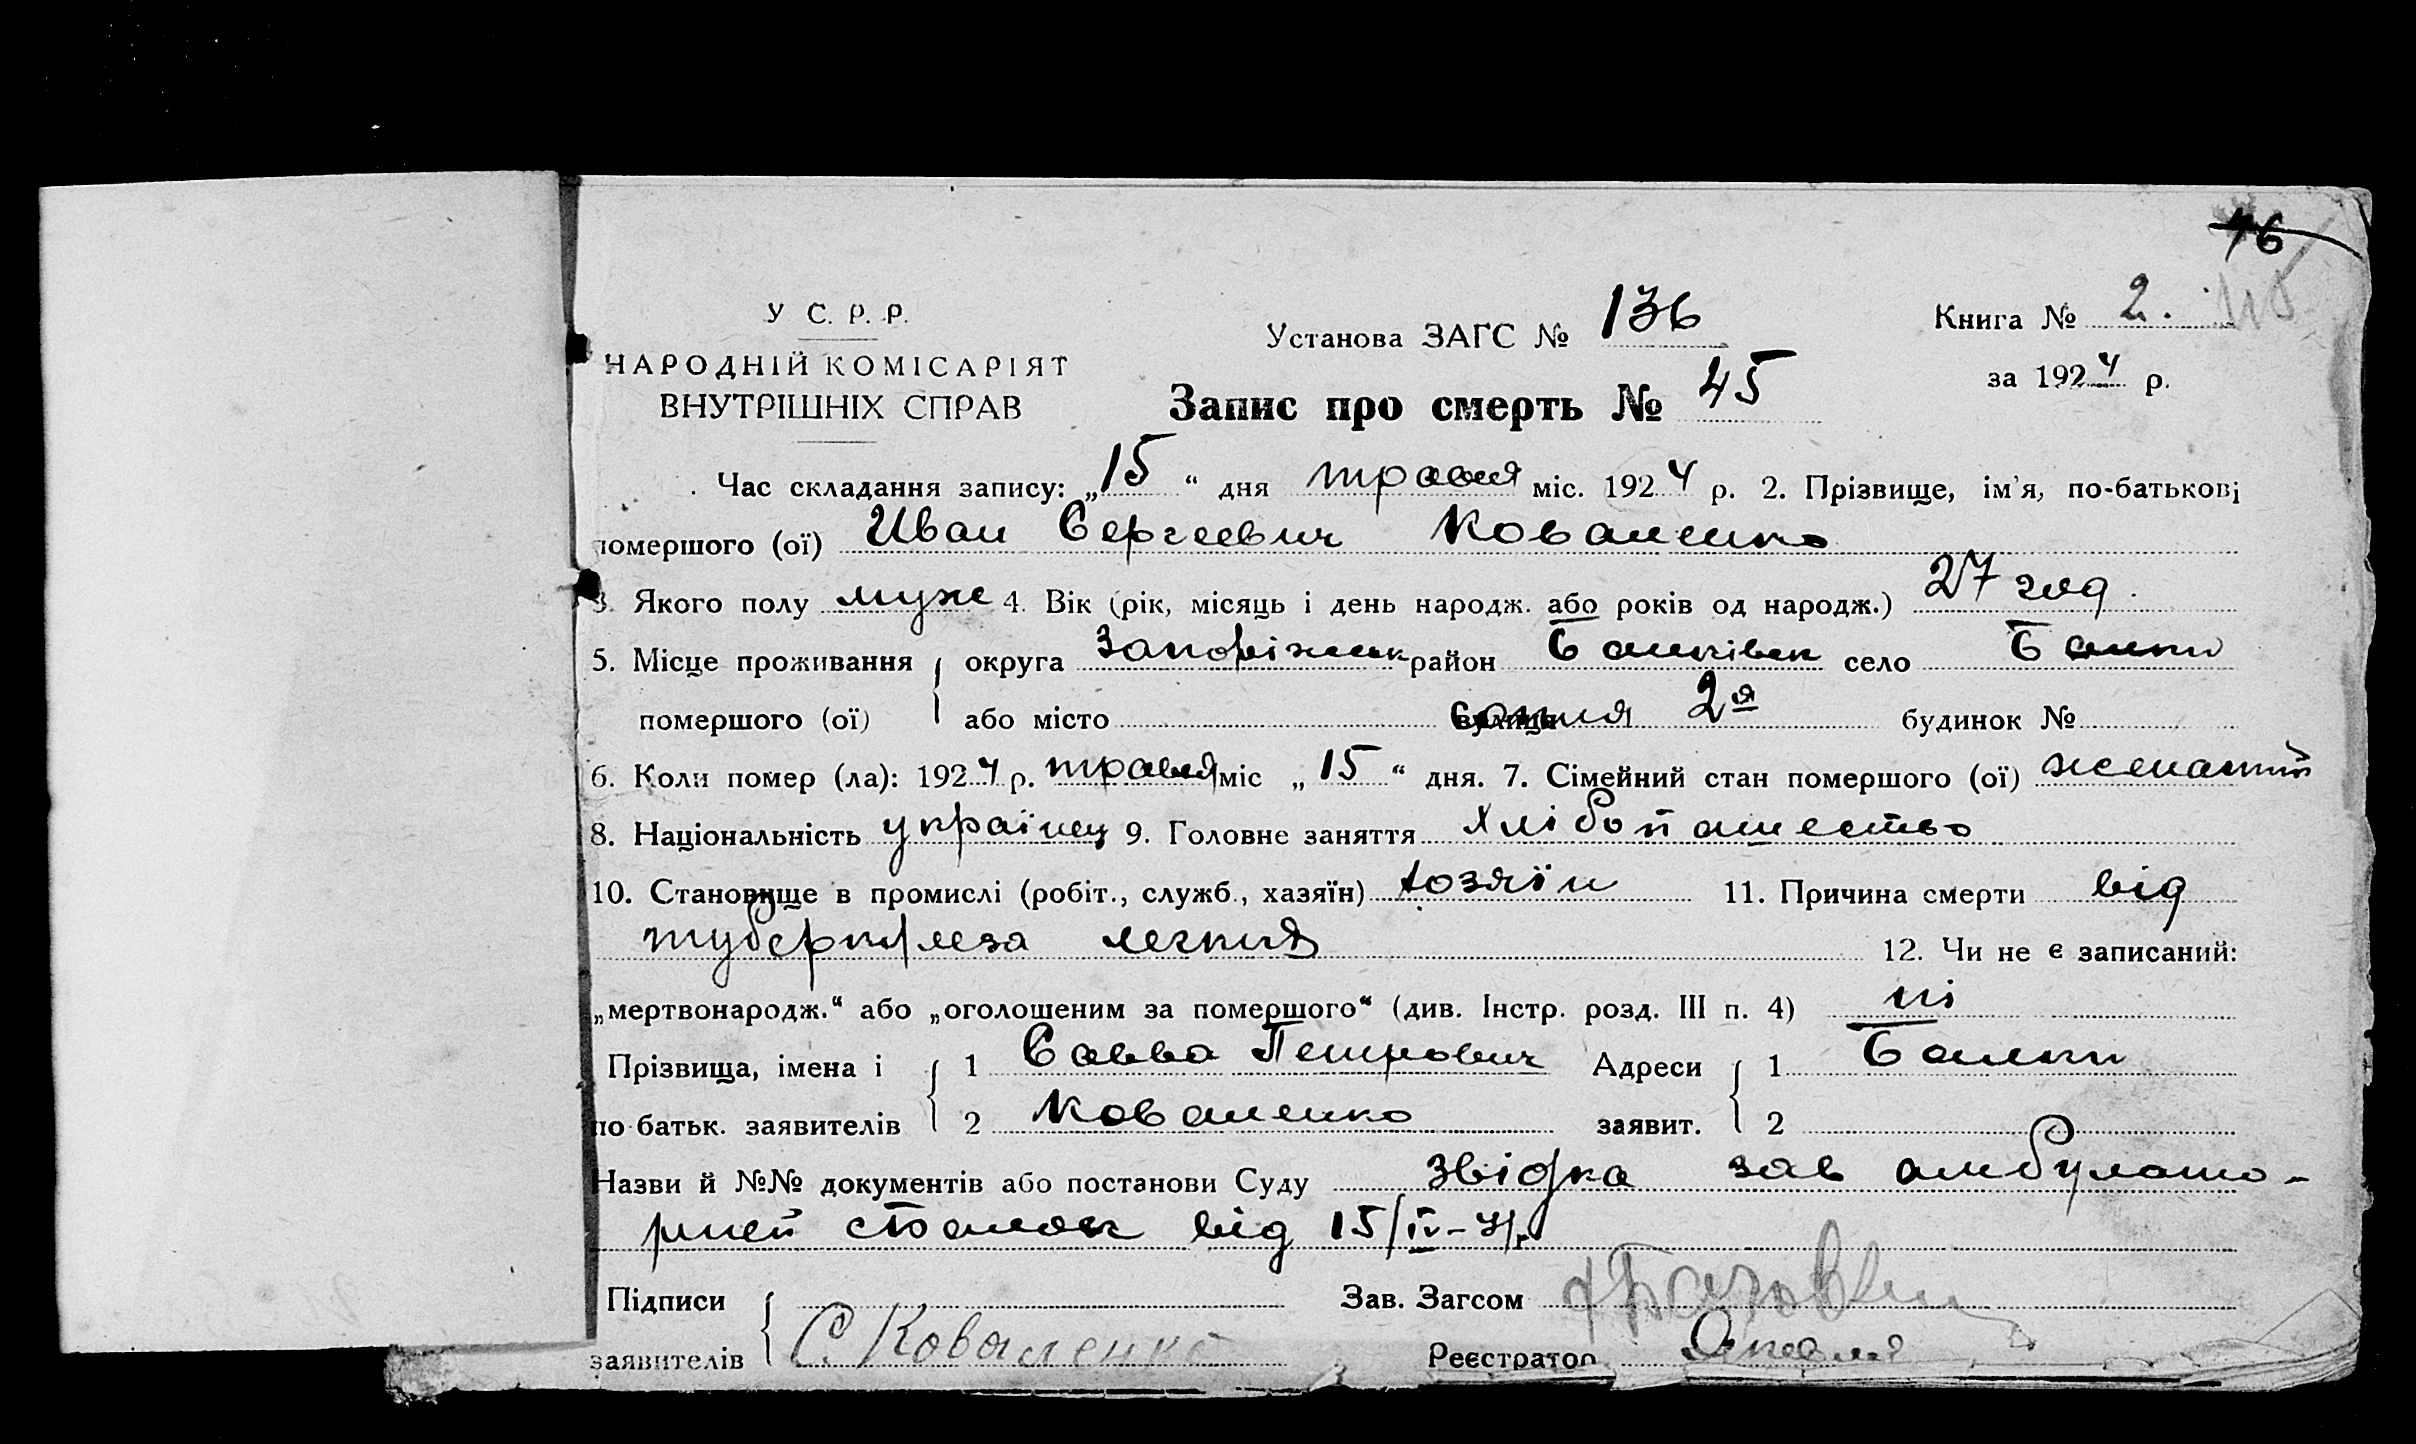 16
У С. Р. Р.
НАРОДНІЙ КОМІСАРІЯТ
ВНУТРІШНІХ СПРАВ
Установа ЗАГС № 136
Книга № 2.
за 1924 р.
Запис про смерть № 45
Час складання запису: „15“ дня травня міс. 1924 р. 2. Прізвище, ім'я, по-батькові
помершого (ої) Иван Сергеевич Коваленко
3. Якого полу муже 4. Вік (рік, місяць і день народж. або років од народж.) 27 год.
5. Місце проживання округа Запоріжск район Балківск село Балки
помершого (ої) або місто вулиця Сотня 2я будинок №
6. Коли помер (ла): 1924 р. травня міс „15“ дня. 7. Сімейний стан помершого (ої) женатий
8. Національність українец 9. Головне заняття хлібопашество
10. Становище в промислі (робіт., служб., хазяїн) хозяїн 11. Причина смерти від
туберкулеза легких 12. Чи не є записаний:
„мертвонародж.“ або „оголошеним за помершого“ (див. Інстр. розд. III п. 4) ні
Прізвища, імена і 1 Савва Петрович Адреси 1 Балки
по-батьк. заявителів 2 Коваленко заявит. 2
Назви й №№ документів або постанови Суду звідка зав амбулато-
рией від 15/IV-
Підписи Зав. Загсом
заявителів С Коваленко Реєстратор